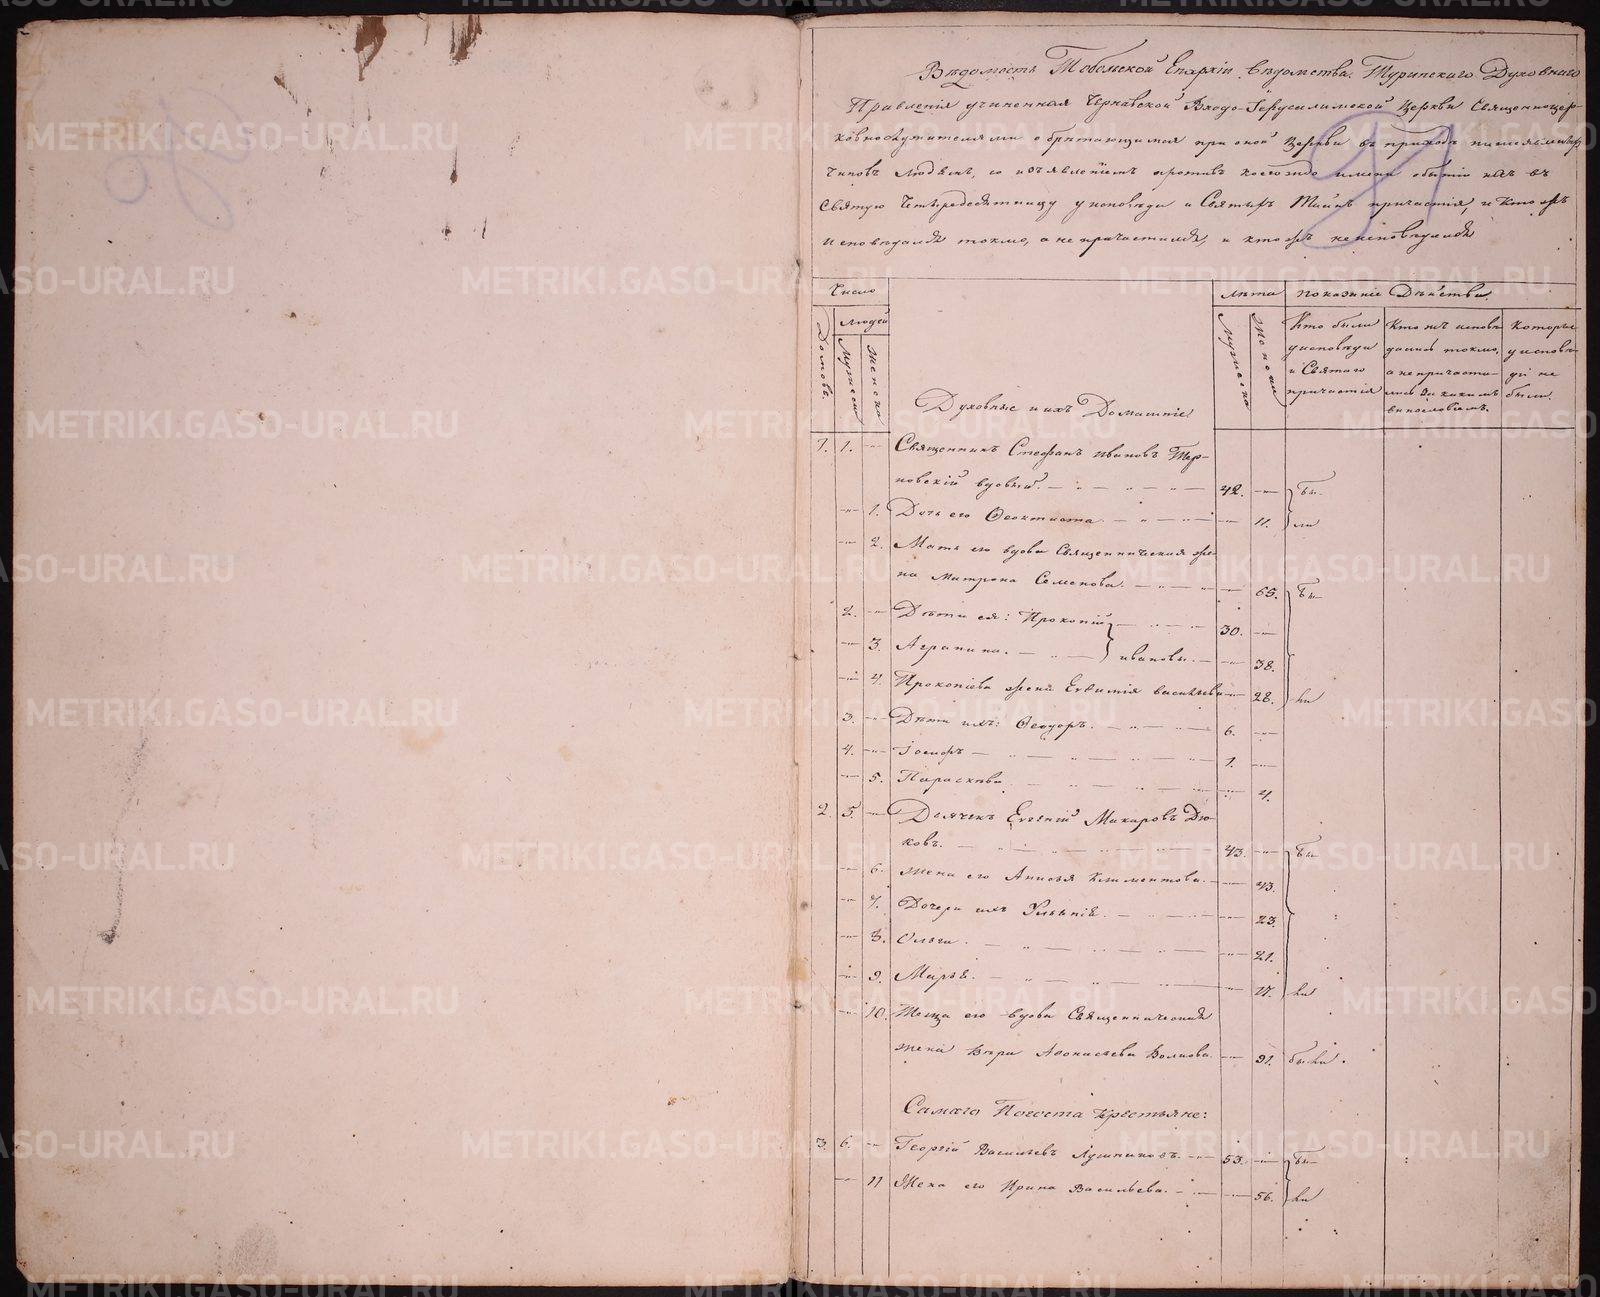 Вѣдомость Тобольской Епархіи Вѣдомства Туринскаго Духовнаго
Правленія учиненная Чернавской Входо-Іерусалимской Церкви Священноцер-
ковнослужителями обрѣтающимся при оной Церкви въ приходѣ
чиновъ людѣмъ, со изъявленіемъ противъ коегождо имени о бытіи ихъ въ
Святую Четыредесятницу у исповѣди и Святыхъ Таинъ причастія, и кто жъ
исповѣдался токмо, а не причастился, и кто жъ неисповѣдался
91
Число
Людей
Домовъ.
Мужеска
Женска
Духовные и ихъ Домашніе
Лѣта
Мужеска
Женска
Показаніе Дѣйства.
Кто были
у исповѣди
и Святаго
причастія
Кто жъ исповѣ-
дались токмо,
а не причасти-
лись за какимъ
винословіемъ.
Которые
у исповѣ-
ди не
были.
1. 1. Священникъ Стефанъ Ивановъ Тер-
новскій вдовый. 42. Бы-
1. Дочь его Феоктиста 11. ли
2. Мать его вдова Священническая же-
на Матрона Семенова. 65. Бы-
2. Дѣти ея: Прокопій 30.
3. Агрипина. Ивановы. 38.
4. Прокопіева жена Евфимія Васильева 28. ли
3. Дѣти ихъ: Феодоръ. 6.
4. Іосифъ 1.
5. Параскева 4.
2. 5. Дьячекъ Евгеній Макаровъ Дю-
ковъ. 43. Бы-
6. Жена его Анисья Климентова. 43.
7. Дочери ихъ Ульянія. 23.
8. Ольга. 21.
9. Марья. 17. ли
10. Теща его вдова Священническая
жена Вѣра Афонасьева Волкова. 91. были.
Самаго Погоста Крестьяне:
3. 6. Георгій Васильевъ Лушниковъ. 53. Бы-
11 Жена его Ирина Васильева. 56. ли
METRIKI.GASO-URAL.RU